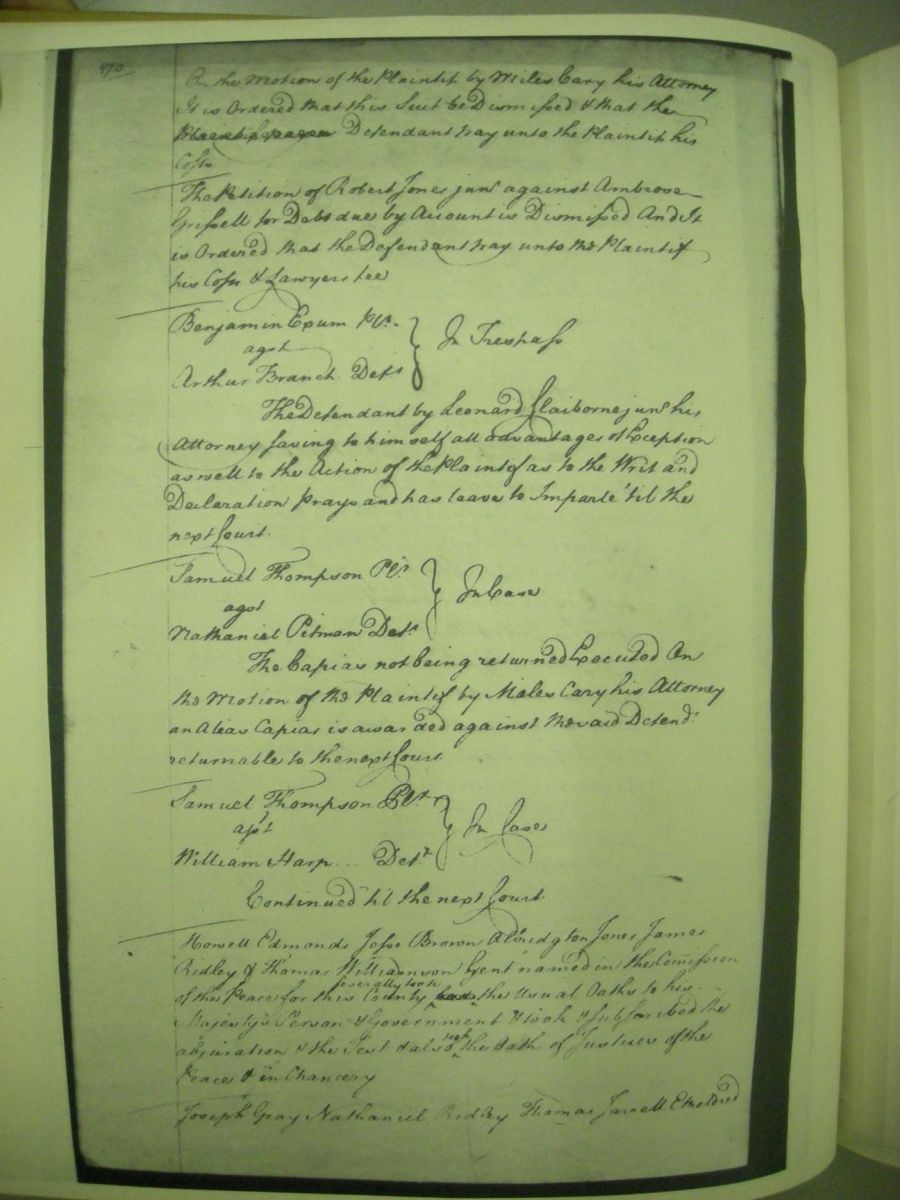 170
On the Motion of the Plaintif by Miles Cary his Attorney
It is Ordered that this Suit be Dismissed & that the
Defendant pay unto the Plaintif his
Costs
The Petition of Robert Jones junr against Ambrose
Grissell for Debt due by Account is Dismissed And It
is Ordered that the Defendant pay unto the Plaintif
his Costs & Lawyers fee
Benjamin Exum Plt.
agst } In Trespass
Arthur Branch Deft
The Defendant by Leonard Claiborne junr his
Attorney saving to himself all advantages of Exception
as well to the Action of the Plaintif as to the Writ and
Declaration prays and has leave to Imparle 'til the
next Court.
Samuel Thompson Plt
agst } In Case
Nathaniel Pitman Deft
The Capias not being returned Executed On
the Motion of the Plaintif by Miles Cary his Attorney
an Alias Capias is awarded against the said Defendt
returnable to the next Court
Samuel Thompson Plt
agst } In Case
William Harp Deft
Continued 'til the next Court.
Howell Edmonds Jesse Brown Albridgton Jones James
Ridley & Thomas Williamson Gent named in the Comission
of the Peace for this County severally took the Usual Oaths to his
Majesty's Person & Government & took & subscribed the
abjuration & the Test & also took the Oath of Justices of the
Peace & in Chancery
Joseph Gray Nathaniel Ridley Thomas Jarrell Etheldred